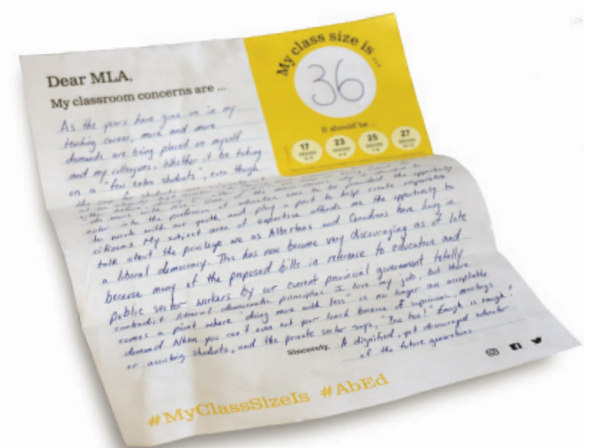 My class size is ...
36
It should be ...
17
23
25
27
Dear MLA,
My classroom concerns are ...
As the years have gone on in my
teaching career, more and more
demands are being placed on myself
and my colleagues. Whether it be taking
on a "few extra students", even though
enter into the profession of education was to be
to work with our youth and play a part to help create responsible
citizens. My subject area of expertise affords me the opportunity to
talk about the privilege we as Albertans and Canadians have living in
a liberal democracy. This has now become very discouraging as of late
because many of the proposed bills in reference to education and
public sector workers by our current provincial government totally
contradict liberal democratic principles. I love my job, but there
comes a point where "doing more with less" is no longer an acceptable
demand. When you can't even eat your lunch because of supervision, meetings
or assisting students, and the private sector says, "Too bad!" Enough is enough!
Sincerely, A dignified, yet discouraged educator
of the future generations
#MyClassSizeIs #AbEd